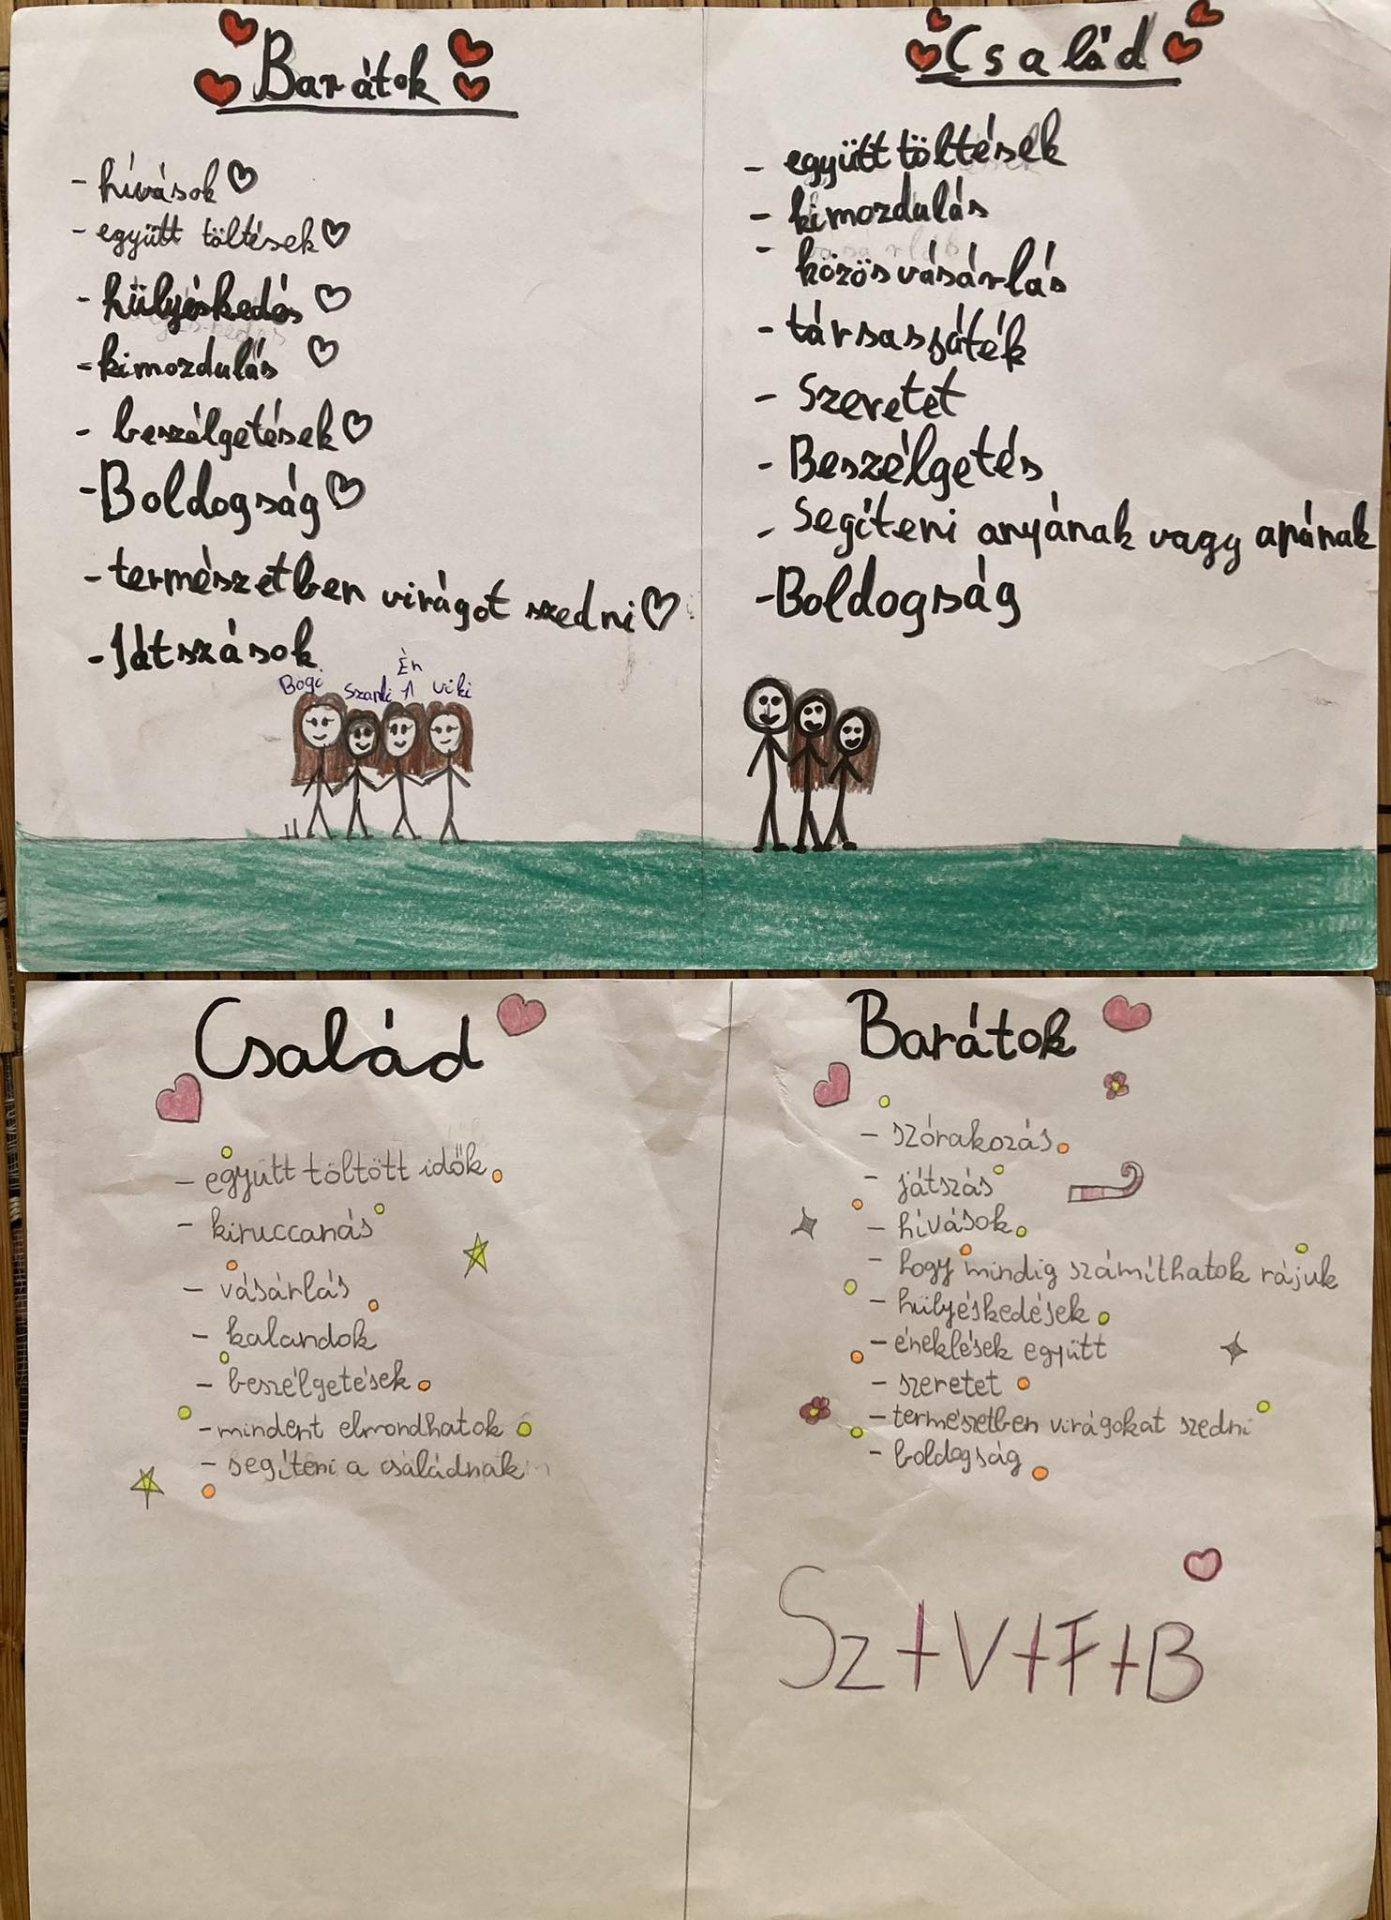 Barátok
- hívások
- együtt töltések
- hülyéskedés
- kimozdulás
- beszélgetések
- Boldogság
- természetben virágot szedni
- Játszások
Bogi
Szandi
Én
Viki
Család
- együtt töltések
- kimozdulás
- közös vásárlás
- társasjáték
- Szeretet
- Beszélgetés
- Segíteni anyának vagy apának
- Boldogság
Család
- együtt töltött idők
- kiruccanás
- vásárlás
- kalandok
- beszélgetések
- mindent elmondhatok
- segíteni a családnak
Barátok
- szórakozás
- játszás
- hívások
- hogy mindig számíthatok rájuk
- hülyéskedések
- éneklések együtt
- szeretet
- természetben virágokat szedni
- boldogság
Sz+V+F+B